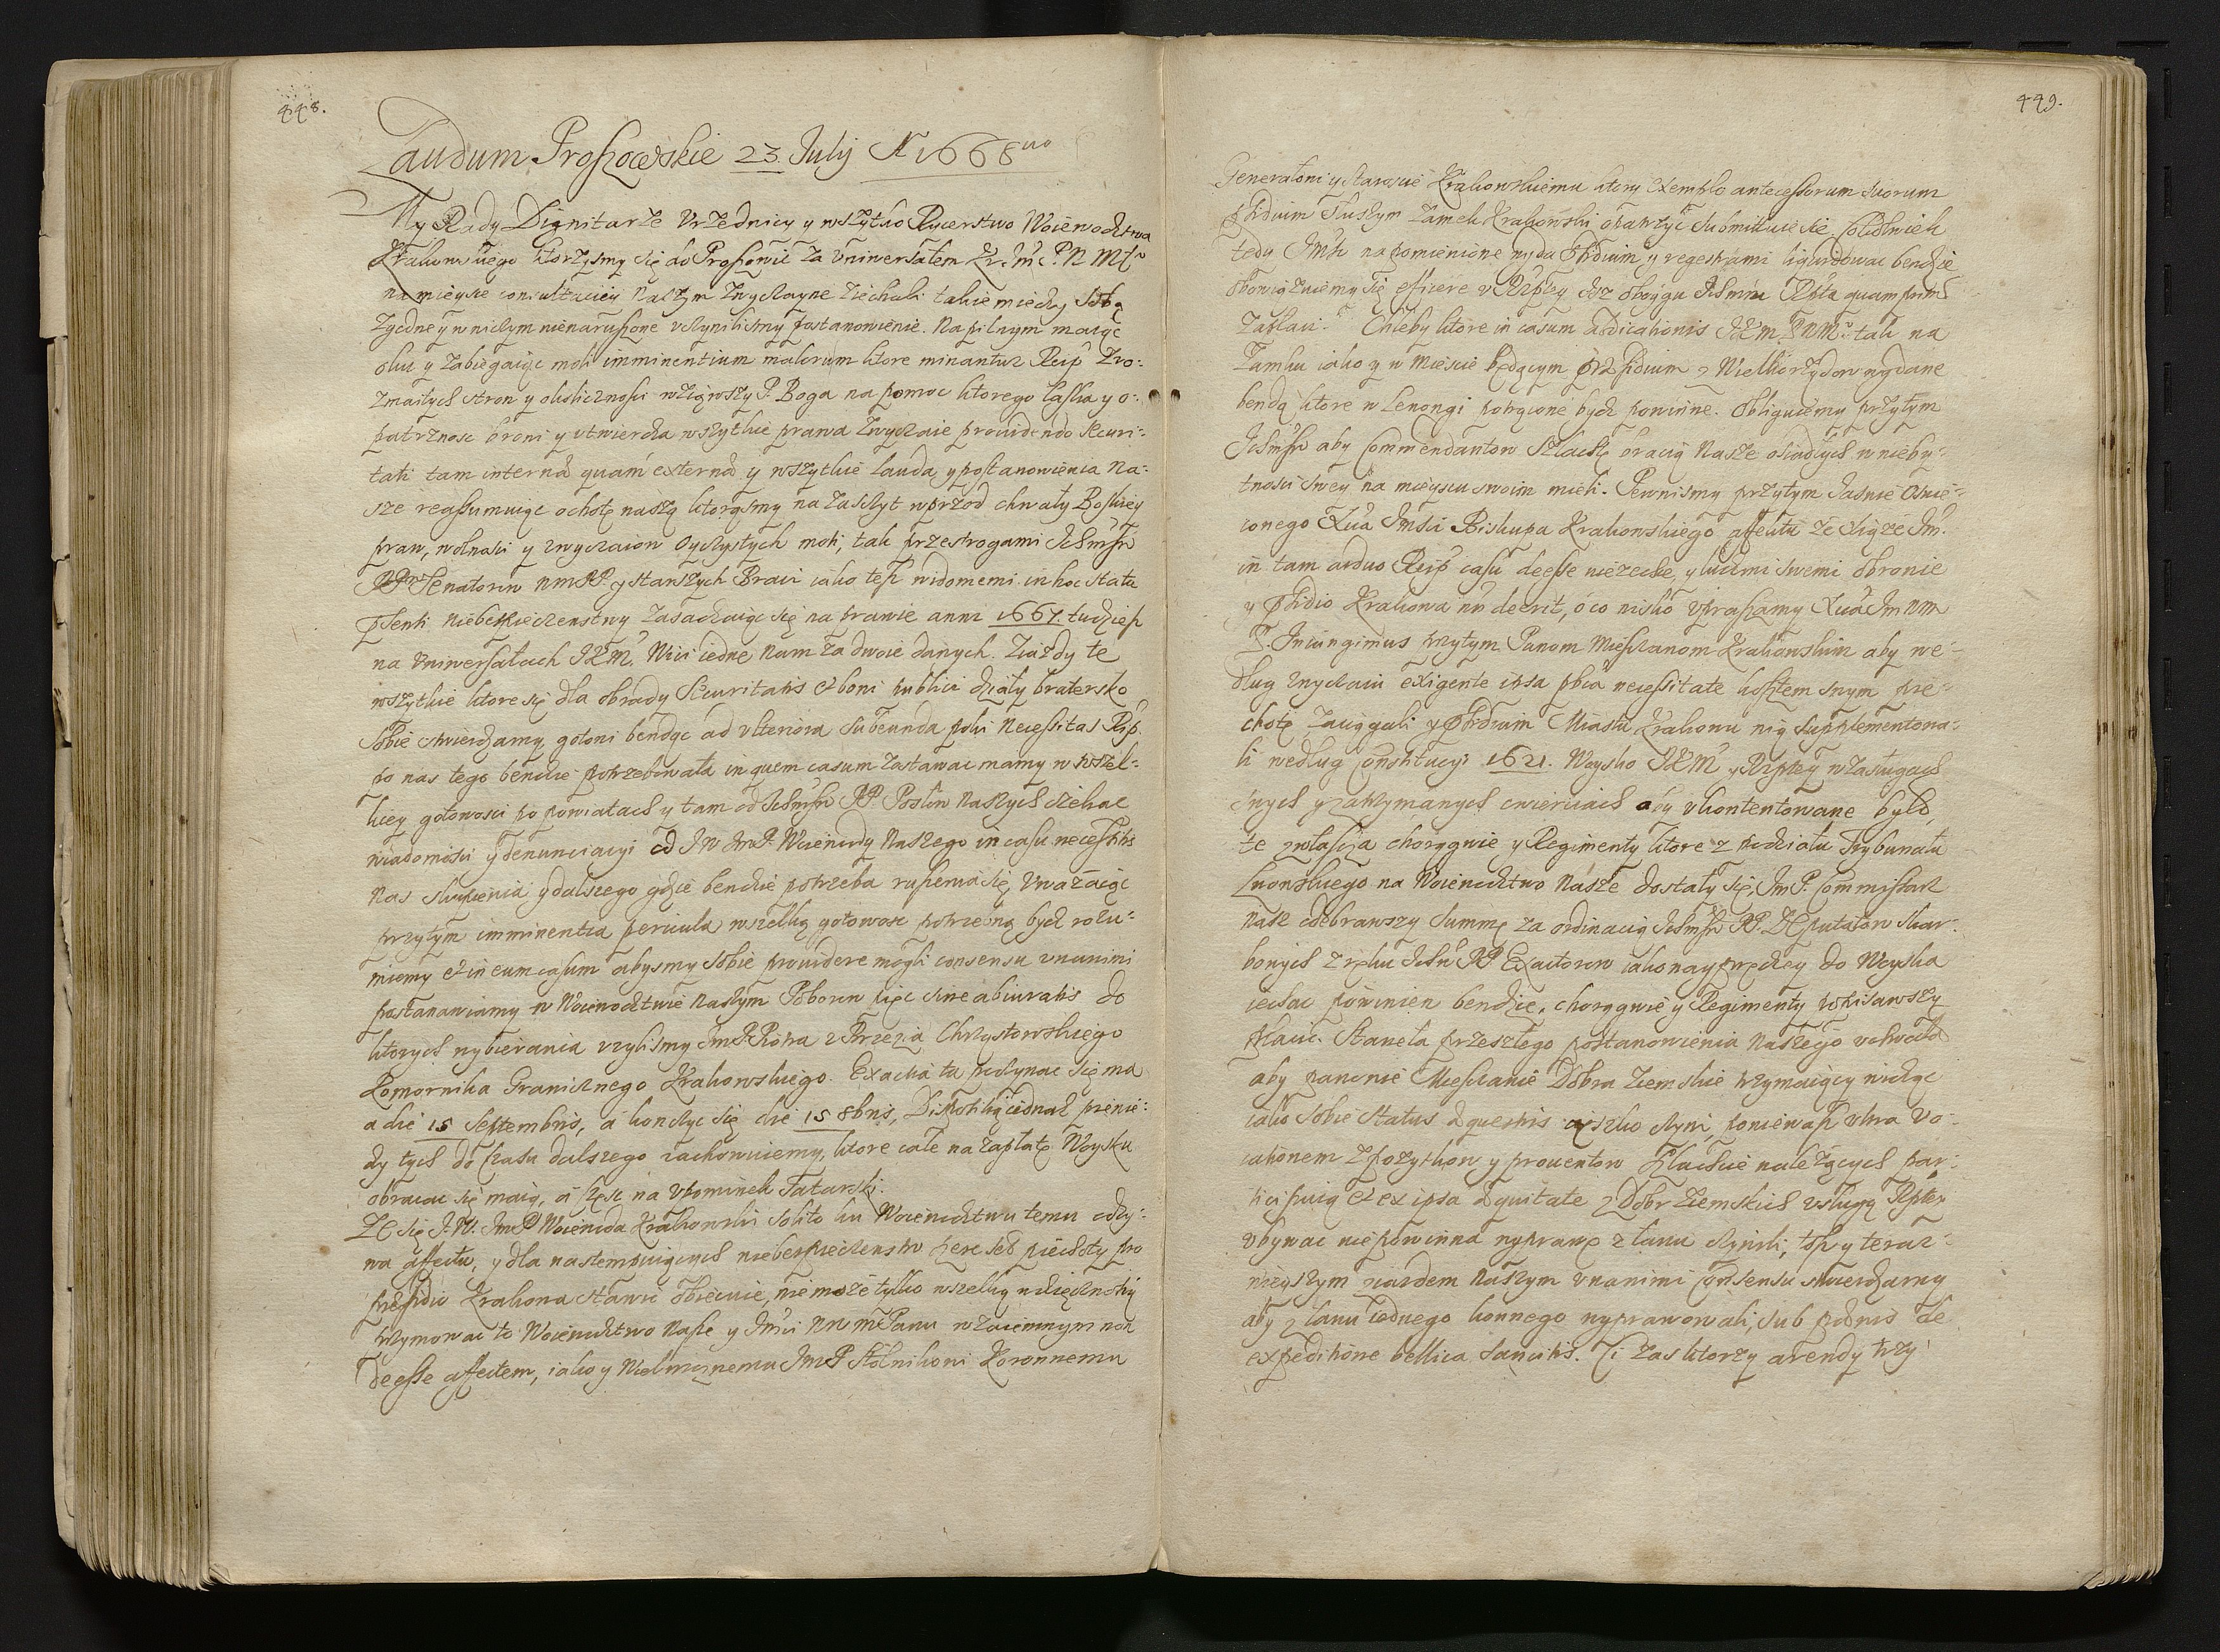 448.
Laudum Proszowskie 23 July A 1668vo
My Rady Dignitarze Vrzednicy y wszytko Rycerstwo Woiewodztwa
Krakowskiego ktorzysmy się do Proszowic za Vniwersałem
na mieysce consultaciey Naszym zwyczayne ziechali takie miedzy sobą
zgodne y w niczym nienaruszone vczynilismy postanowienie. Na pilnym maiąc
oku y zabiegaiąc moli imminentium malorum ktore minantur Reip Zro:
zmaitych stron y okolicznosci wziąwszy P. Boga na pomoc ktorego łaska y o:
patrznosc broni y vtwierdza wszytkie prawa zwyczaie providendo securi:
tati tam interna quam externa y wszytkie lauda y postanowienia Na:
sze reassumuiąc ochotę naszą ktorąsmy na zaszczyt wprzod chwały Boskiey
praw, wolnosci y zwyczaiow Oyczystych moti, tak przestrogami
Senatorow y starszych Braci iako tesz widomemi in hoc statu
psenti niebespieczenstwy zasadzaiąc się na prawie anni 1667. tudziesz
na Vniwersałach JKM. Wici iedne Nam za dwoie danych. Ziazdy te
wszytkie ktore się dla obrady securitatis et boni publici działy bratersko
sobie stwierdzamy, gotoni bendąc ad vlteriora subeunda necessitas Rip.
po nas tego bendzie potrzebowała in quem casum zostawac mamy w wszel:
kiey gotowosci po powiatach y tam od PP. Posłow Naszych czekac
wiadomosci y denunciacyi od JW JmP. Woiewody Naszego in casu necessitatis
Nas skupienia y dalszego gdzie bendzie potrzeba ruszenia się, Vwazaiąc
przytym imminentia pericula wszelką gotowosc potrzebną bydz rozu:
miemy et in eum casum abysmy sobie providere mogli consensu vnanimi
postanawiamy w Woiewodztwie Naszym Poborow pięc sine abiuratis do
ktorych wybierania vzylismy JmP. Piotra z Brzezia Chrząstowskiego
Komornika Granicznego Krakowskiego. Exactia ta poczynac się ma
a die 15 Septembris, á konczyc się die 15 8bris, iednak pienię:
dzy tych do czasu dalszego zachowuiemy, ktore całe na zapłatę Woysku
obracac się maią, á częsc na Vpominek Tatarski.
Ze się J.W. JmP Woiewoda Krakowski solito ku Woiewodztwu temu odzy:
wa affectu, y dla nastempuiących niebezpieczenstw piechoty pro
praesidio Krakowa stawic obiecuie, nie może tylko wszelką wdzięcznoscią
przymowac to Woiewodztwo Nasze y Jmsci Panu wzaiemnym non
deesse affectem, iako y Wielmoznemu JmP Stolnikowi Koronnemu
449.
Generałowi y Staroscie Krakowskiemu ktory exemplo antecessorum suorum
słusznym zamek Krakowski opatrzyc submittuie się, cokolwiek
tedy na pomienione wyda y regestrami ligwidowac bendzie
obowiązuiemy się efficere v Rzptey
zapłaci. Chleby ktore in casum abdicationis tak na
Zamku iako y w Miescie będącym z Wielkorządow wydane
bendą ktore w Lenongi potrącone bydz powinne. Obliguiemy przytym
aby Commendantow Szlachtę bracią Nasze osiadłych w nieby:
tnosci swey na mieyscu swoim mieli. Pewnismy przytym Jasnie Oswie:
conego Xcia Jmsci Biskupa Krakowskiego affektu ze Xiąze Jm.
in tam arduo Reip casu deesse niezechce, y ludzmi swemi obronie
y Krakowa deerit, o co nisko vpraszamy Xcia Jm
P. Iniungimus przytym Panom Mieszczanom Krakowskim aby we:
dług zwyczaiu exigente ipsa necessitate kosztem swym pie:
chotę zaciągali y Miastu Krakowu nią supplementowa:
li według constitucyi 1621. Woysko JKM y Rzptey w zasługach
swych y zatrzymanych cwierciach aby vkontentowane było,
te zwłaszcza chorągwie y Regimenty ktore z podziału Trybunału
Lwowskiego na Woiewodztwo Nasze dostały się, JmP. Commissarz
Nasz odebrawszy summę za ordinacią PP. Deputatow Skar:
bowych z ręku PP. Exactorow iako naypredzey do Woyska
iechac powinien bendzie, chorągwie y Regimenty popisawszy
płacic. Staneła przeszłego postanowienia Naszego vchwała
aby panowie Mieszczanie Dobra Ziemskie trzymaiący niechąc
iako sobie status equestris cięszko czyni, poniewasz vltra vo:
cationem z pozytkow y prouentow szlachcie należących par:
ticipuią et ex ipsa aequitate z Dobr Ziemskich vsługa Rzptey
vbywac nie powinna wyprawę z łanu czynili, tosz y teraz:
nieyszym ziazdem Naszym vnanimi consensu stwierdzamy
aby z łanu iednego konnego wyprawowali, sub paenis de
expeditione bellica sancitis. Ci zas ktorzy arendy trzy